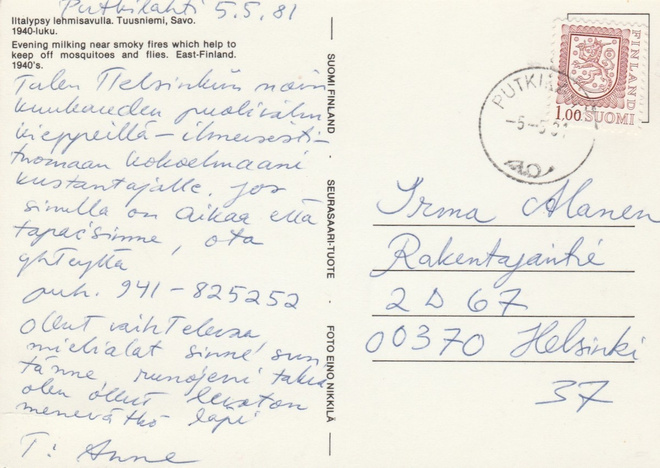 Putkilahti 5.5.81
Iltalypsy lehmisavulla. Tuusniemi, Savo.
1940-luku.
Evening milking near smoky fires which help to
keep off mosquitoes and flies. East-Finland.
1940's.
Tulen Helsinkiin noin
kuukauden puolivälin
kieppeillä – ilmeisesti
tuomaan kokoelmaani
kustantajalle. Jos
sinulla on aikaa että
tapaisimme, ota
yhteyttä
puh. 941-825252
Ollut vaihtelevaa,
mielialat sinne sun
tänne, runojeni takia
olen ollut levoton
menevätkö läpi
T: Anne
SUOMI FINLAND · SEURASAARI-TUOTE · FOTO EINO NIKKILÄ
FINLAND
1,00 SUOMI
-5-5.81
Irma Alanen
Rakentajantie
2 D 67
00370 Helsinki
37